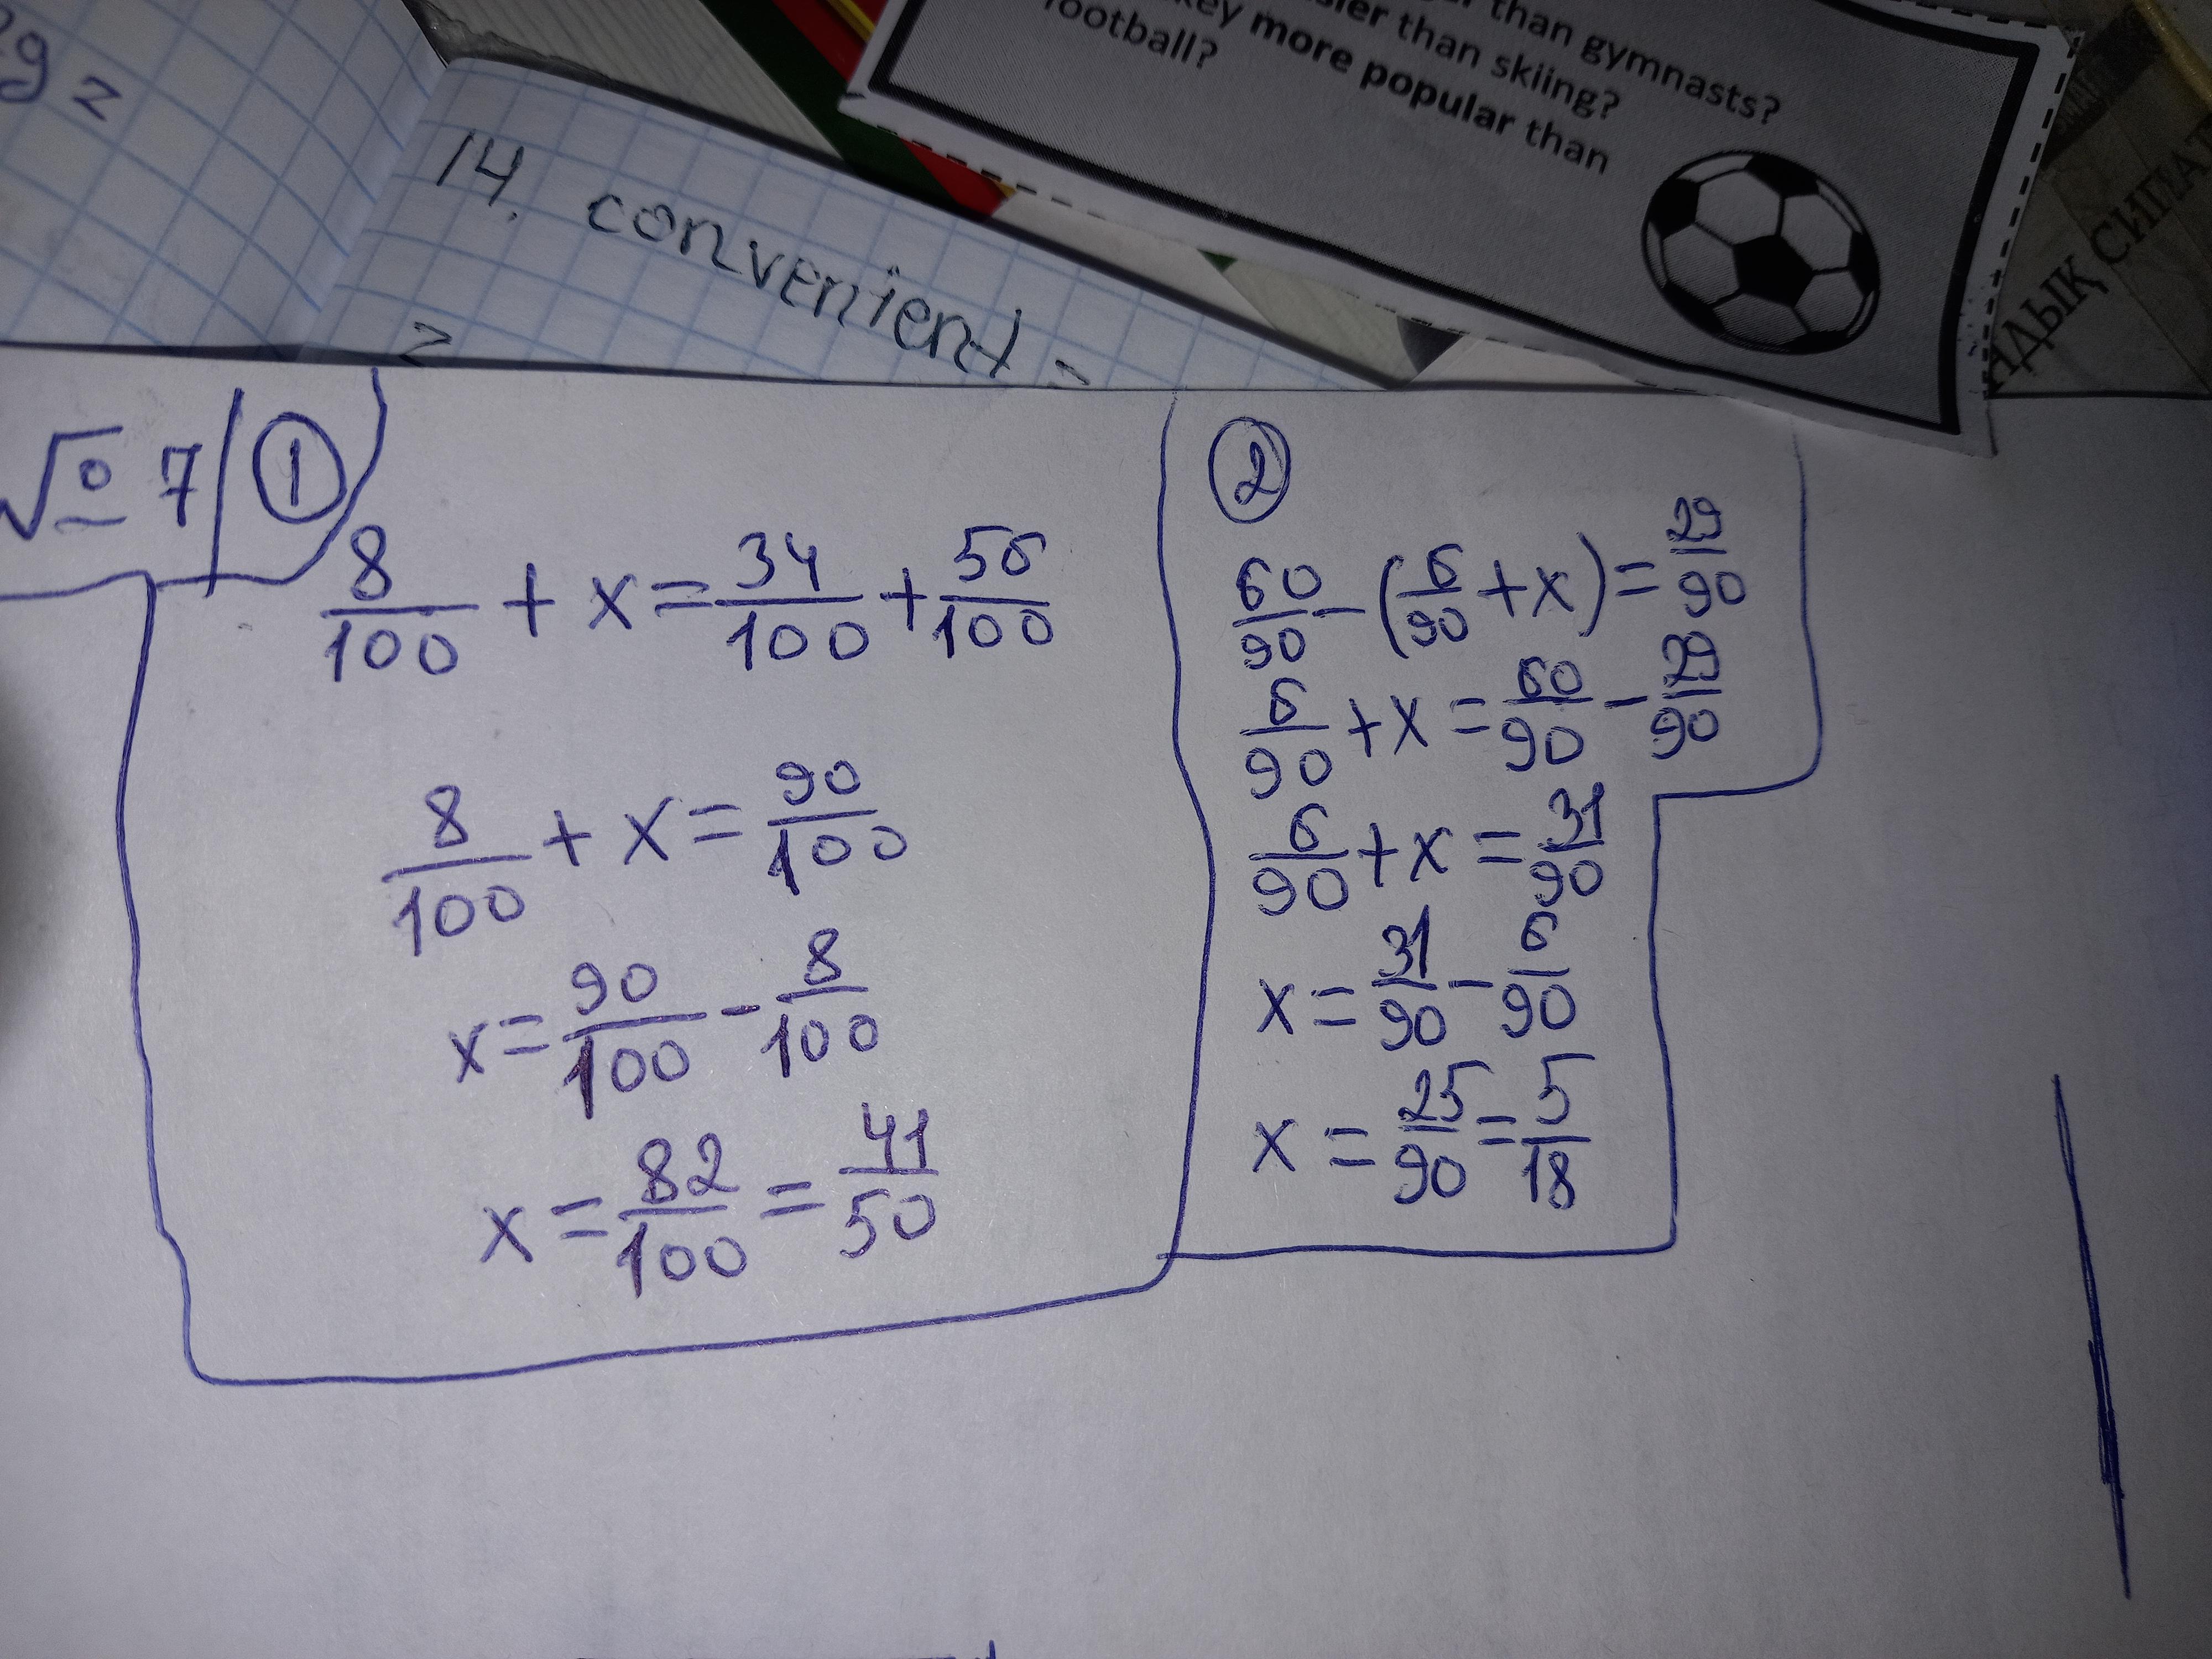 than gymnasts?
than skiing?
more popular than
football?
14. convenient =
№ 7 / 1
8/100 + x = 34/100 + 56/100
8/100 + x = 90/100
x = 90/100 - 8/100
x = 82/100 = 41/50
2
60/90 - (6/90 + x) = 29/90
6/90 + x = 60/90 - 29/90
6/90 + x = 31/90
x = 31/90 - 6/90
x = 25/90 = 5/18